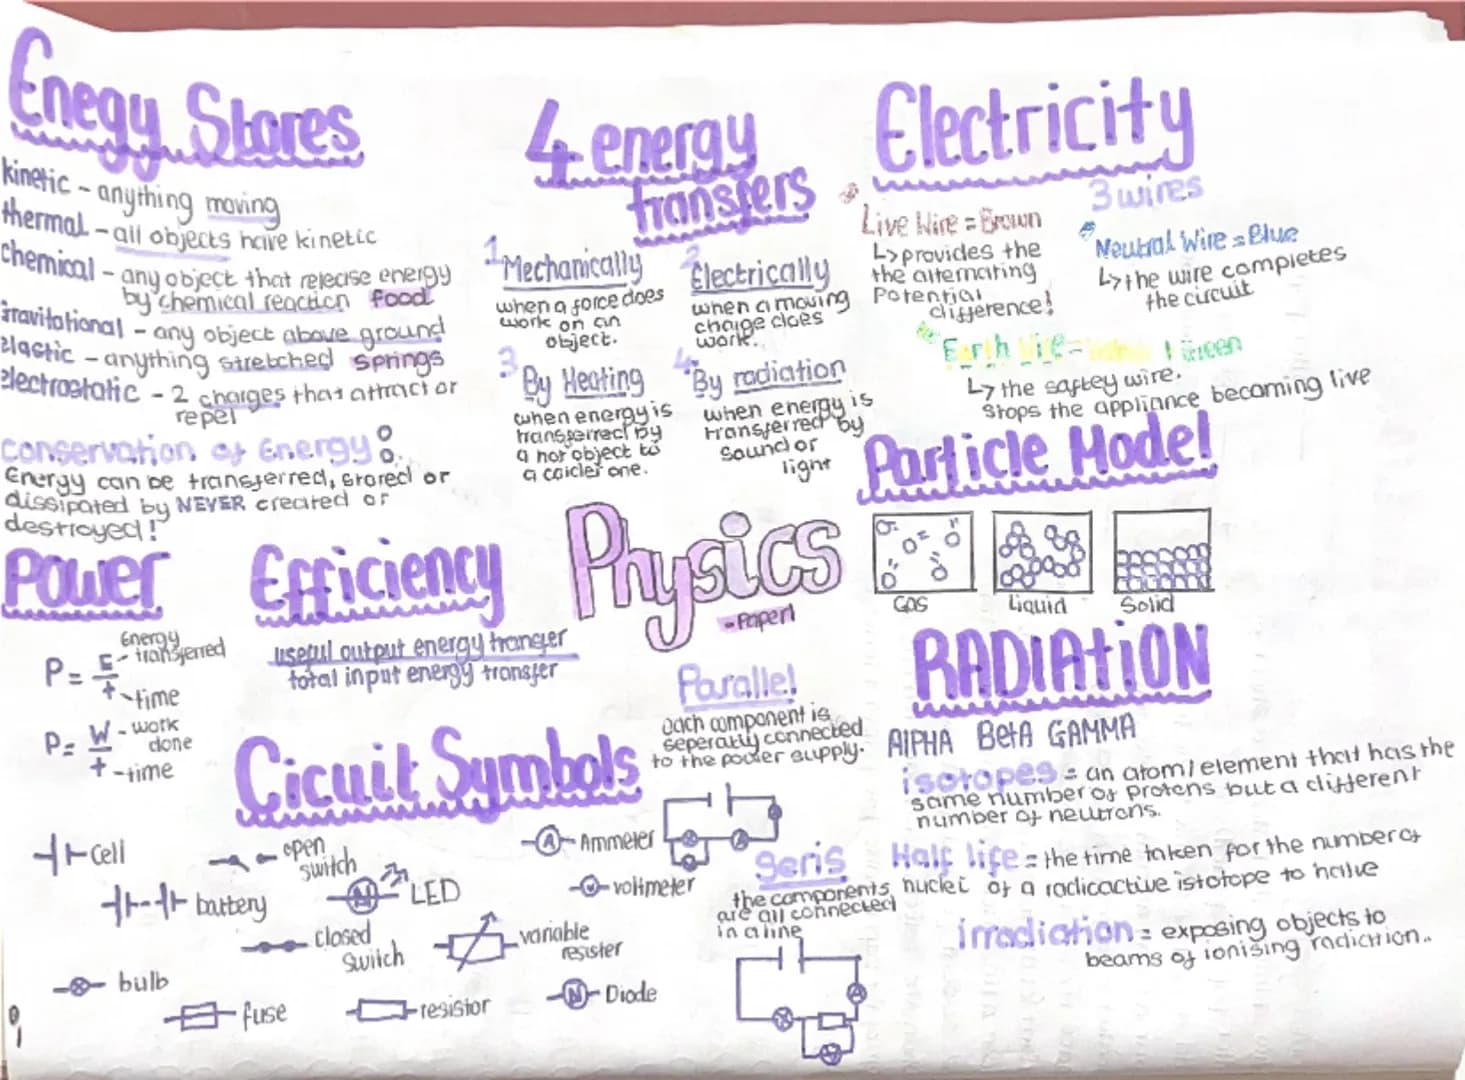 Enegy Stores
kinetic - anything moving
thermal - all objects have kinetic
chemical - any object that release energy
by chemical reaction food
gravitational - any object above ground
elastic - anything stretched springs
electrostatic - 2 charges that attract or
repel
conservation of Energy:
Energy can be transferred, stored or
dissipated by NEVER created or
destroyed!
4 energy
transfers
1 Mechanically
when a force does
work on an
object.
2 Electrically
when a moving
charge does
work.
3 By Heating
when energy is
transferred by
a hot object to
a colder one.
4. By radiation
when energy is
transferred by
sound or
light
Electricity
3 wires
Live Wire = Brown
↳ provides the
the alternating
Potential
difference!
Neutral Wire = Blue
↳ the wire completes
the circuit
Earth Wire = Green
↳ the saftey wire.
stops the appliance becoming live
Particle Model
Gas
Liquid
Solid
Power
P = E - Energy transferred
t - time
P = W - work done
t - time
Efficiency
useful output energy transfer
total input energy transfer
Physics
- Paper 1
Parallel
each component is
seperatly connected
to the power supply.
RADIATION
AlPHA BetA GAMMA
isotopes = an atom/element that has the
same number of protons but a different
number of neutrons.
Half life = the time taken for the number of
nuclei of a radioactive istotope to halve
irradiation = exposing objects to
beams of ionising radiation..
Cicuit Symbols
cell
open
switch
A Ammeter
battery
LED
V voltmeter
closed
switch
variable
resister
bulb
fuse
resistor
Diode
Seris
the components
are all connected
in a line
A